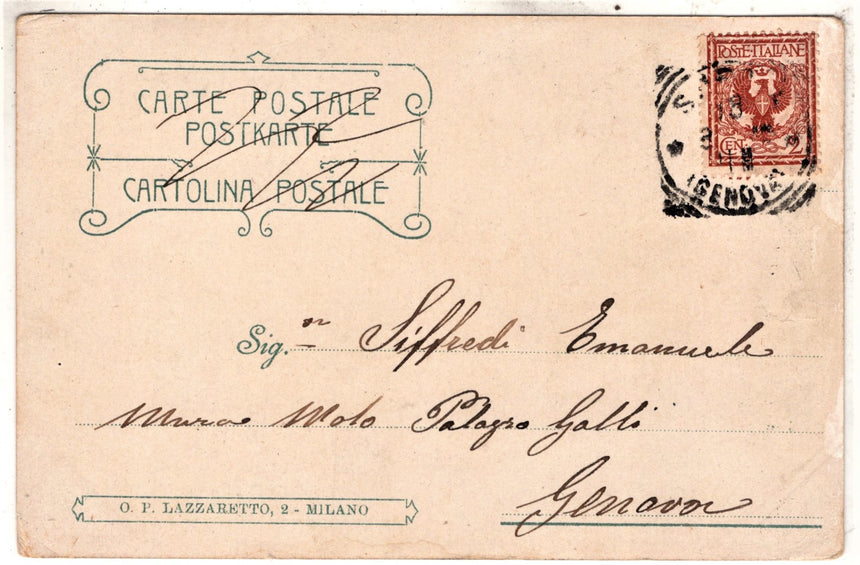 CARTE POSTALE
POSTKARTE
CARTOLINA POSTALE
POSTE-ITALIANE
CEN. 2
(GENOVA)
Sig.r Siffredi Emanuele
Mura Molo Palazzo Galli
Genova
O. P. LAZZARETTO, 2 - MILANO